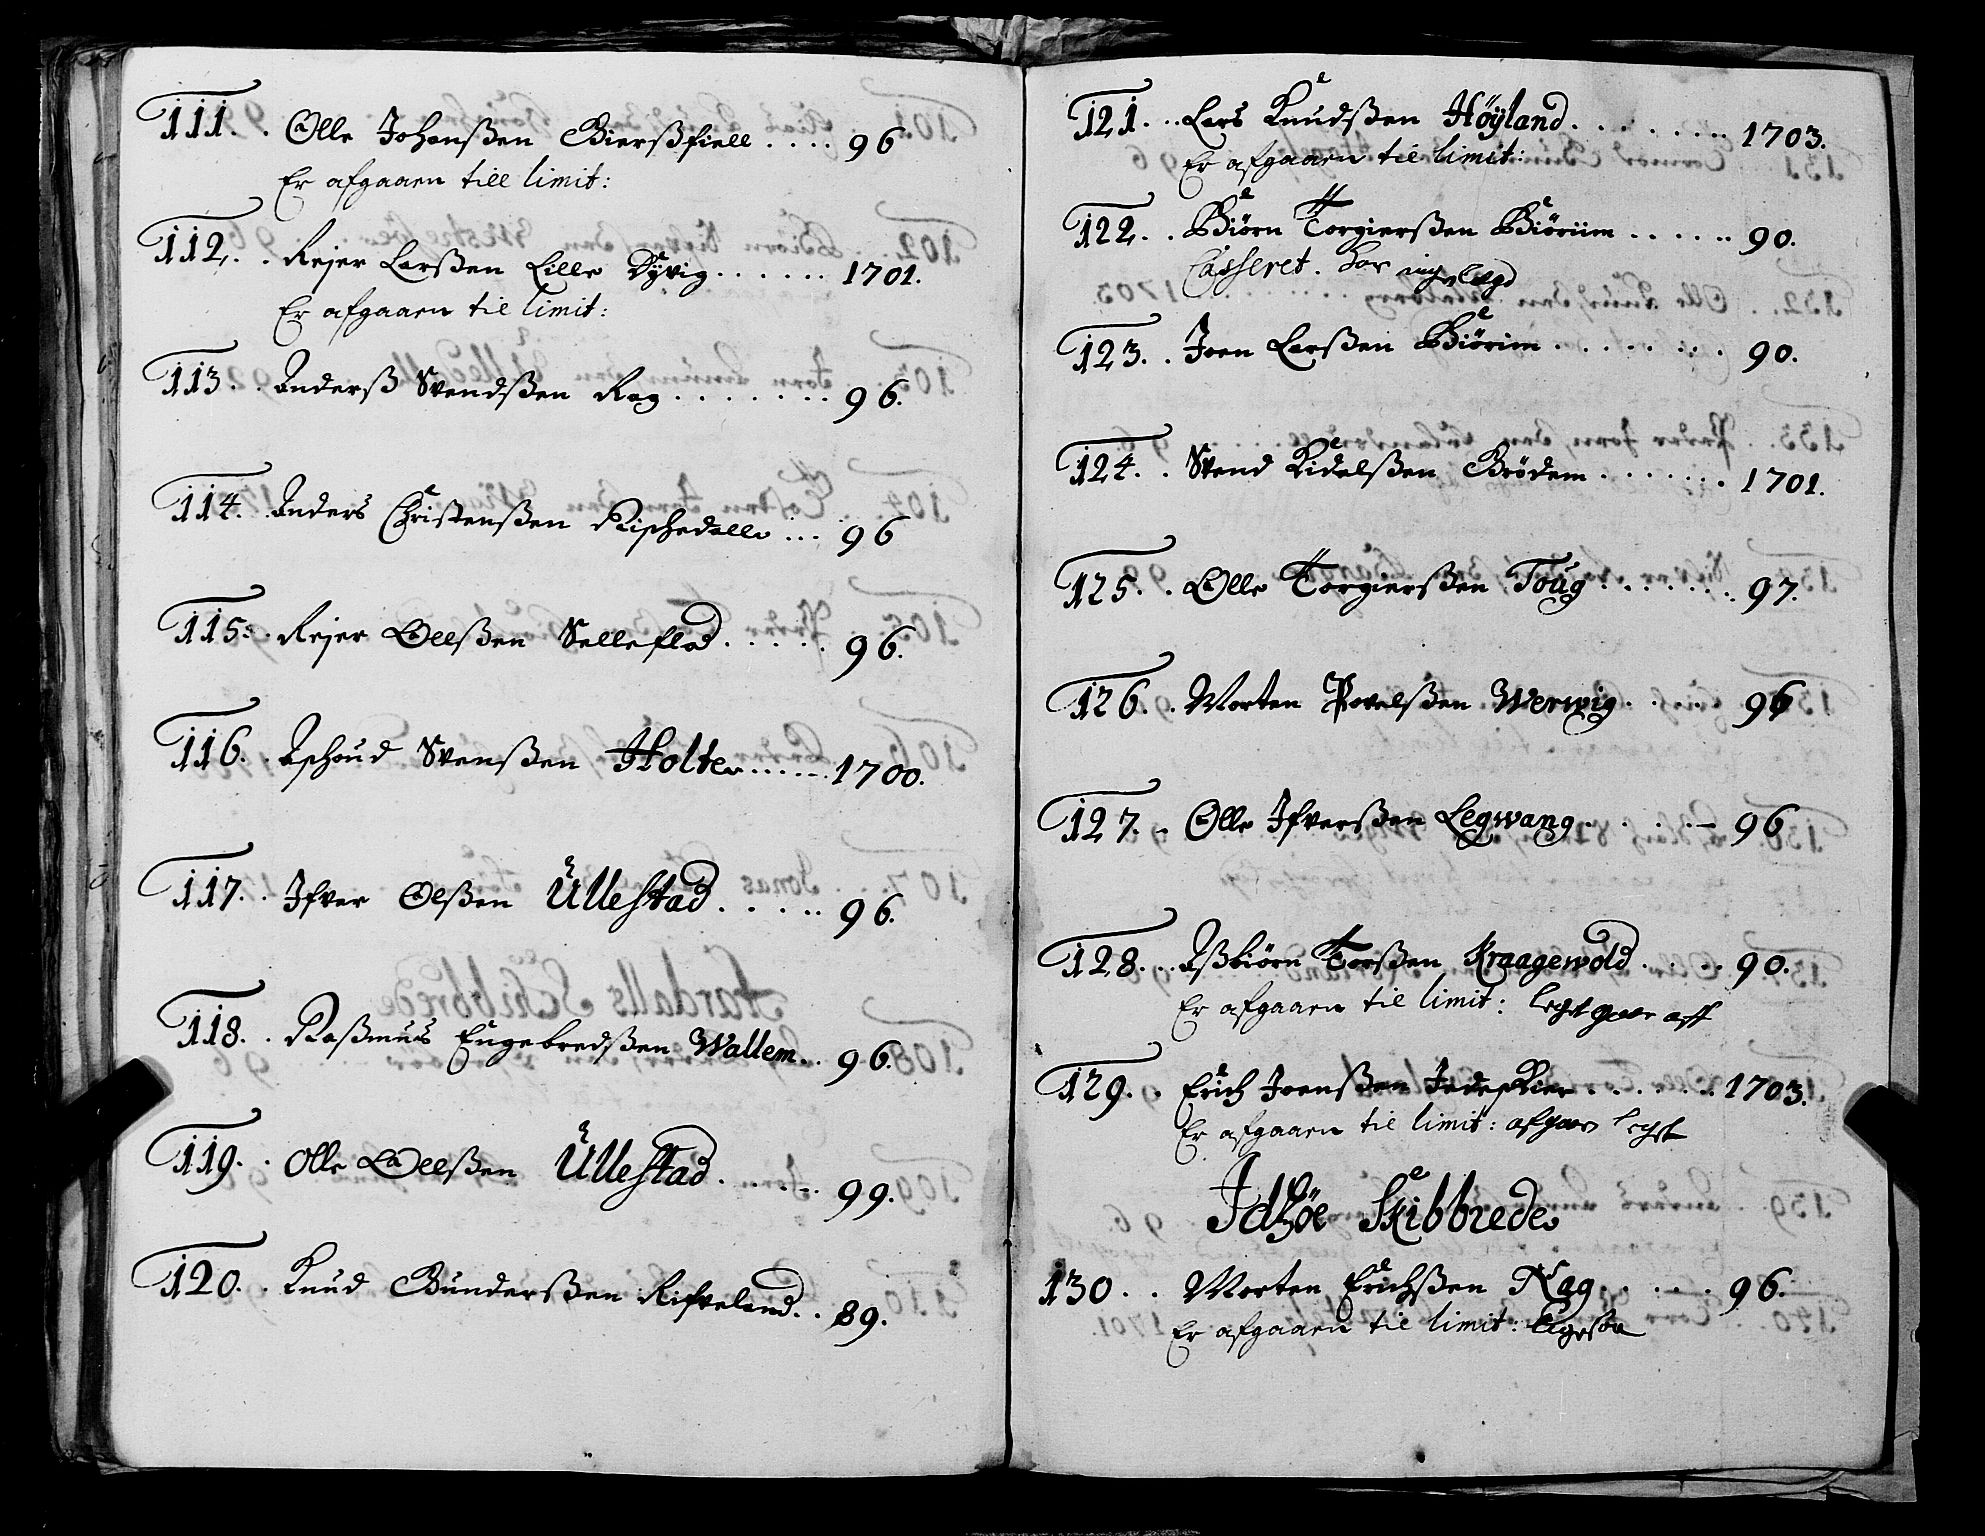 111. . Olle Johanßen Bierßfiell . . . . 96
Er afgaaen till limit:
112. . Rejer Larßen Lille Dyvig . . . . . . 1701.
Er afgaaen til limit:
113. . Anderß Svendßen Rag . . . . . . . 96.
114. . Anders Christenßen Rishedalle . . . 96
115. . Rejer Olßen Selleflod . . . . . 96.
116. . Ashoud Svenßen Holte . . . . . . 1700.
117. . Ifver Olßen Ullestad . . . . . 96.
118. . Raßmus Engebredßen Wallem . . 96.
119. . Olle Olßen Ullestad . . . . . 99.
120. . Knud Gunderßen Rifveland . . 89.
121. . Lars Knudßen Höyland . . . . . . . . 1703.
Er afgaaen til limit:
122. . Biörn Torgierßen Biöriim . . . . . . 90.
Casseret. har ing legd
123. . Joen Larßen Biörim . . . . . . . 90.
124. . Svend Kidelßen Brödem . . . . . . . 1701.
125. . Olle Torgierßen Toug . . . . . . . 97.
126. . Morten Povelßen Werwig . . . . 96
127. . Olle Ifverßen Legwang . . . . . 96
128. . Aßbiörn Torßen Kraagewold . . . . . 90.
Er afgaaen til limit: legt gaar aff
129. . Erich Joenßen Jedeskier . . . . . . 1703.
Er afgaaen til limit: afgaar legt
Idßöe Skibbrede
130 . . Morten Erichßen Rag . . . . . 96.
Er afgaaen til limit: